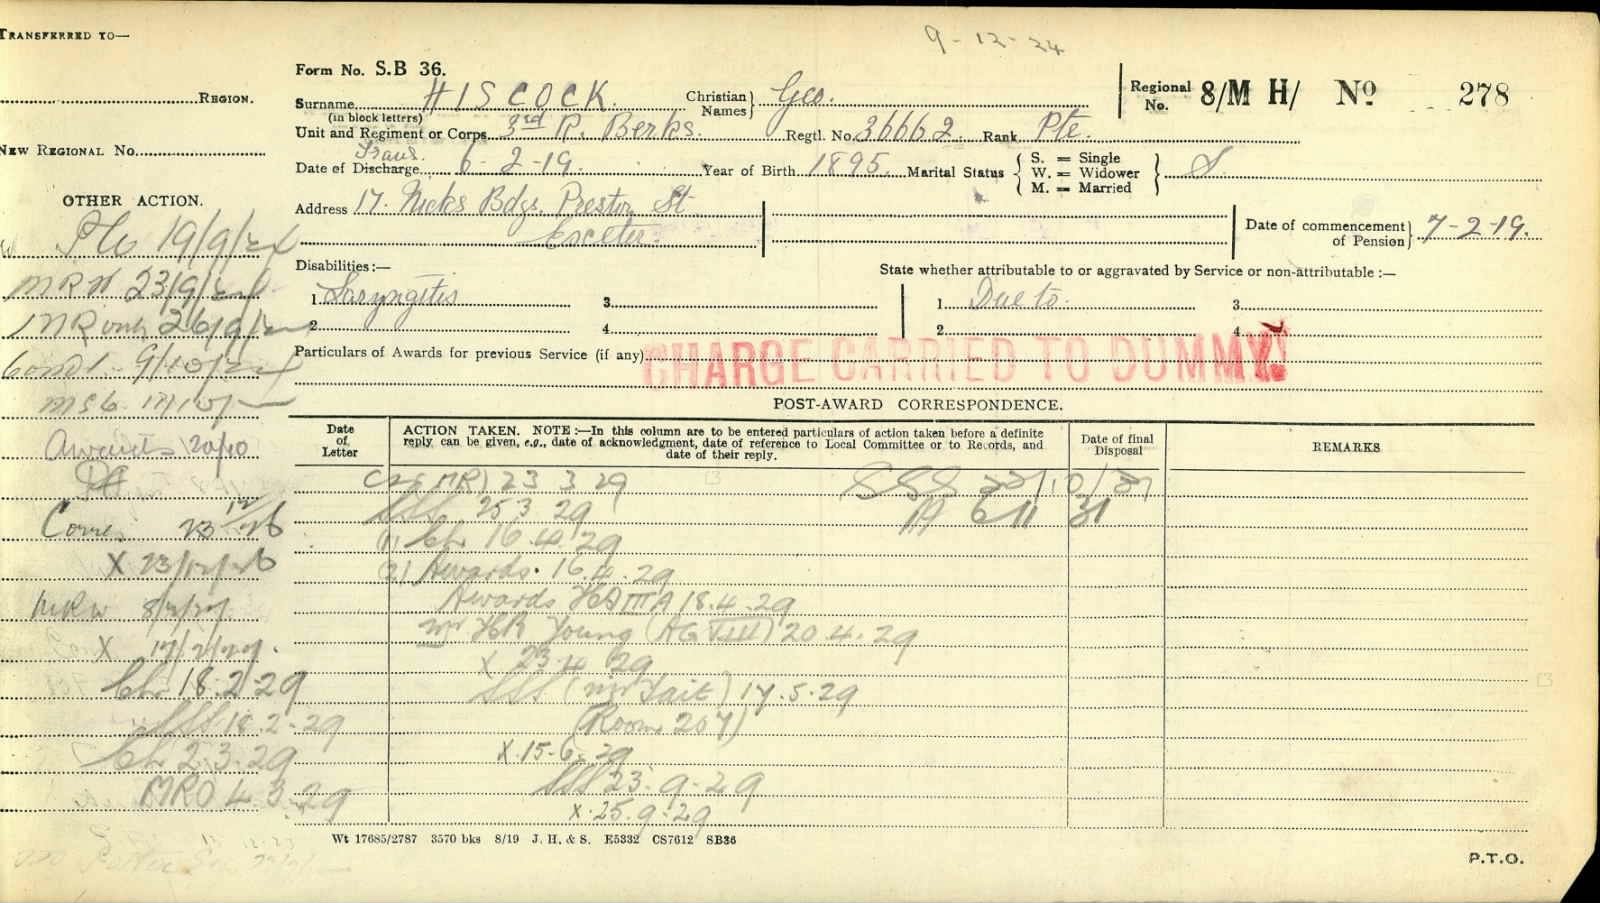 9-12-24
TRANSFERRED TO—
REGION.
NEW REGIONAL No.
OTHER ACTION.
19/9/24
MRH 23/9/24
26/9/24
9/10/24
Awards 20/10
Corres 23/12/26
X 23/12/26
MRW 8/2/27
X 17/2/27.
Ch 18.2.29
SSS 18.2.29
Ch 2.3.29
MRO 4.3.29
Form No. S.B 36.
Surname HISCOCK. Christian Names} Geo. Regional No. 8/M H/ No 278
(in block letters)
Unit and Regiment or Corps 3rd R. Berks. Regtl. No. 36662 Rank Pte.
Trans.
Date of Discharge 6-2-19. Year of Birth 1895. Marital Status { S. = Single W. = Widower M. = Married } S.
Address 17. Nicks Bdgs. Preston St
Exeter. Date of commencement of Pension} 7-2-19.
Disabilities:— State whether attributable to or aggravated by Service or non-attributable:—
1. Laryngitis 3. 1. Due to. 3.
2. 4. 2. 4.
Particulars of Awards for previous Service (if any)
CHARGE CARRIED TO DUMMY.
POST-AWARD CORRESPONDENCE.
Date of Letter
ACTION TAKEN. NOTE:—In this column are to be entered particulars of action taken before a definite
reply can be given, e.g., date of acknowledgment, date of reference to Local Committee or to Records, and
date of their reply.
Date of final Disposal
REMARKS
MR) 23 3 29 SSS 22/10/37
SSS 25.3.29 6 11 31
(1) Ch 16.4.29
(2) Awards. 16.4.29
Awards HQ III A 18.4.29
Mr HR Young (AG VIII) 20.4.29
X 23.4.29
SSS (Mr Tait) 17.5.29
(Room 207)
X.15-6.29
SSS 23.9.29
X.25.9.29
Wt 17685/2787 3570 bks 8/19 J. H. & S. E5332 CS7612 SB36
P.T.O.